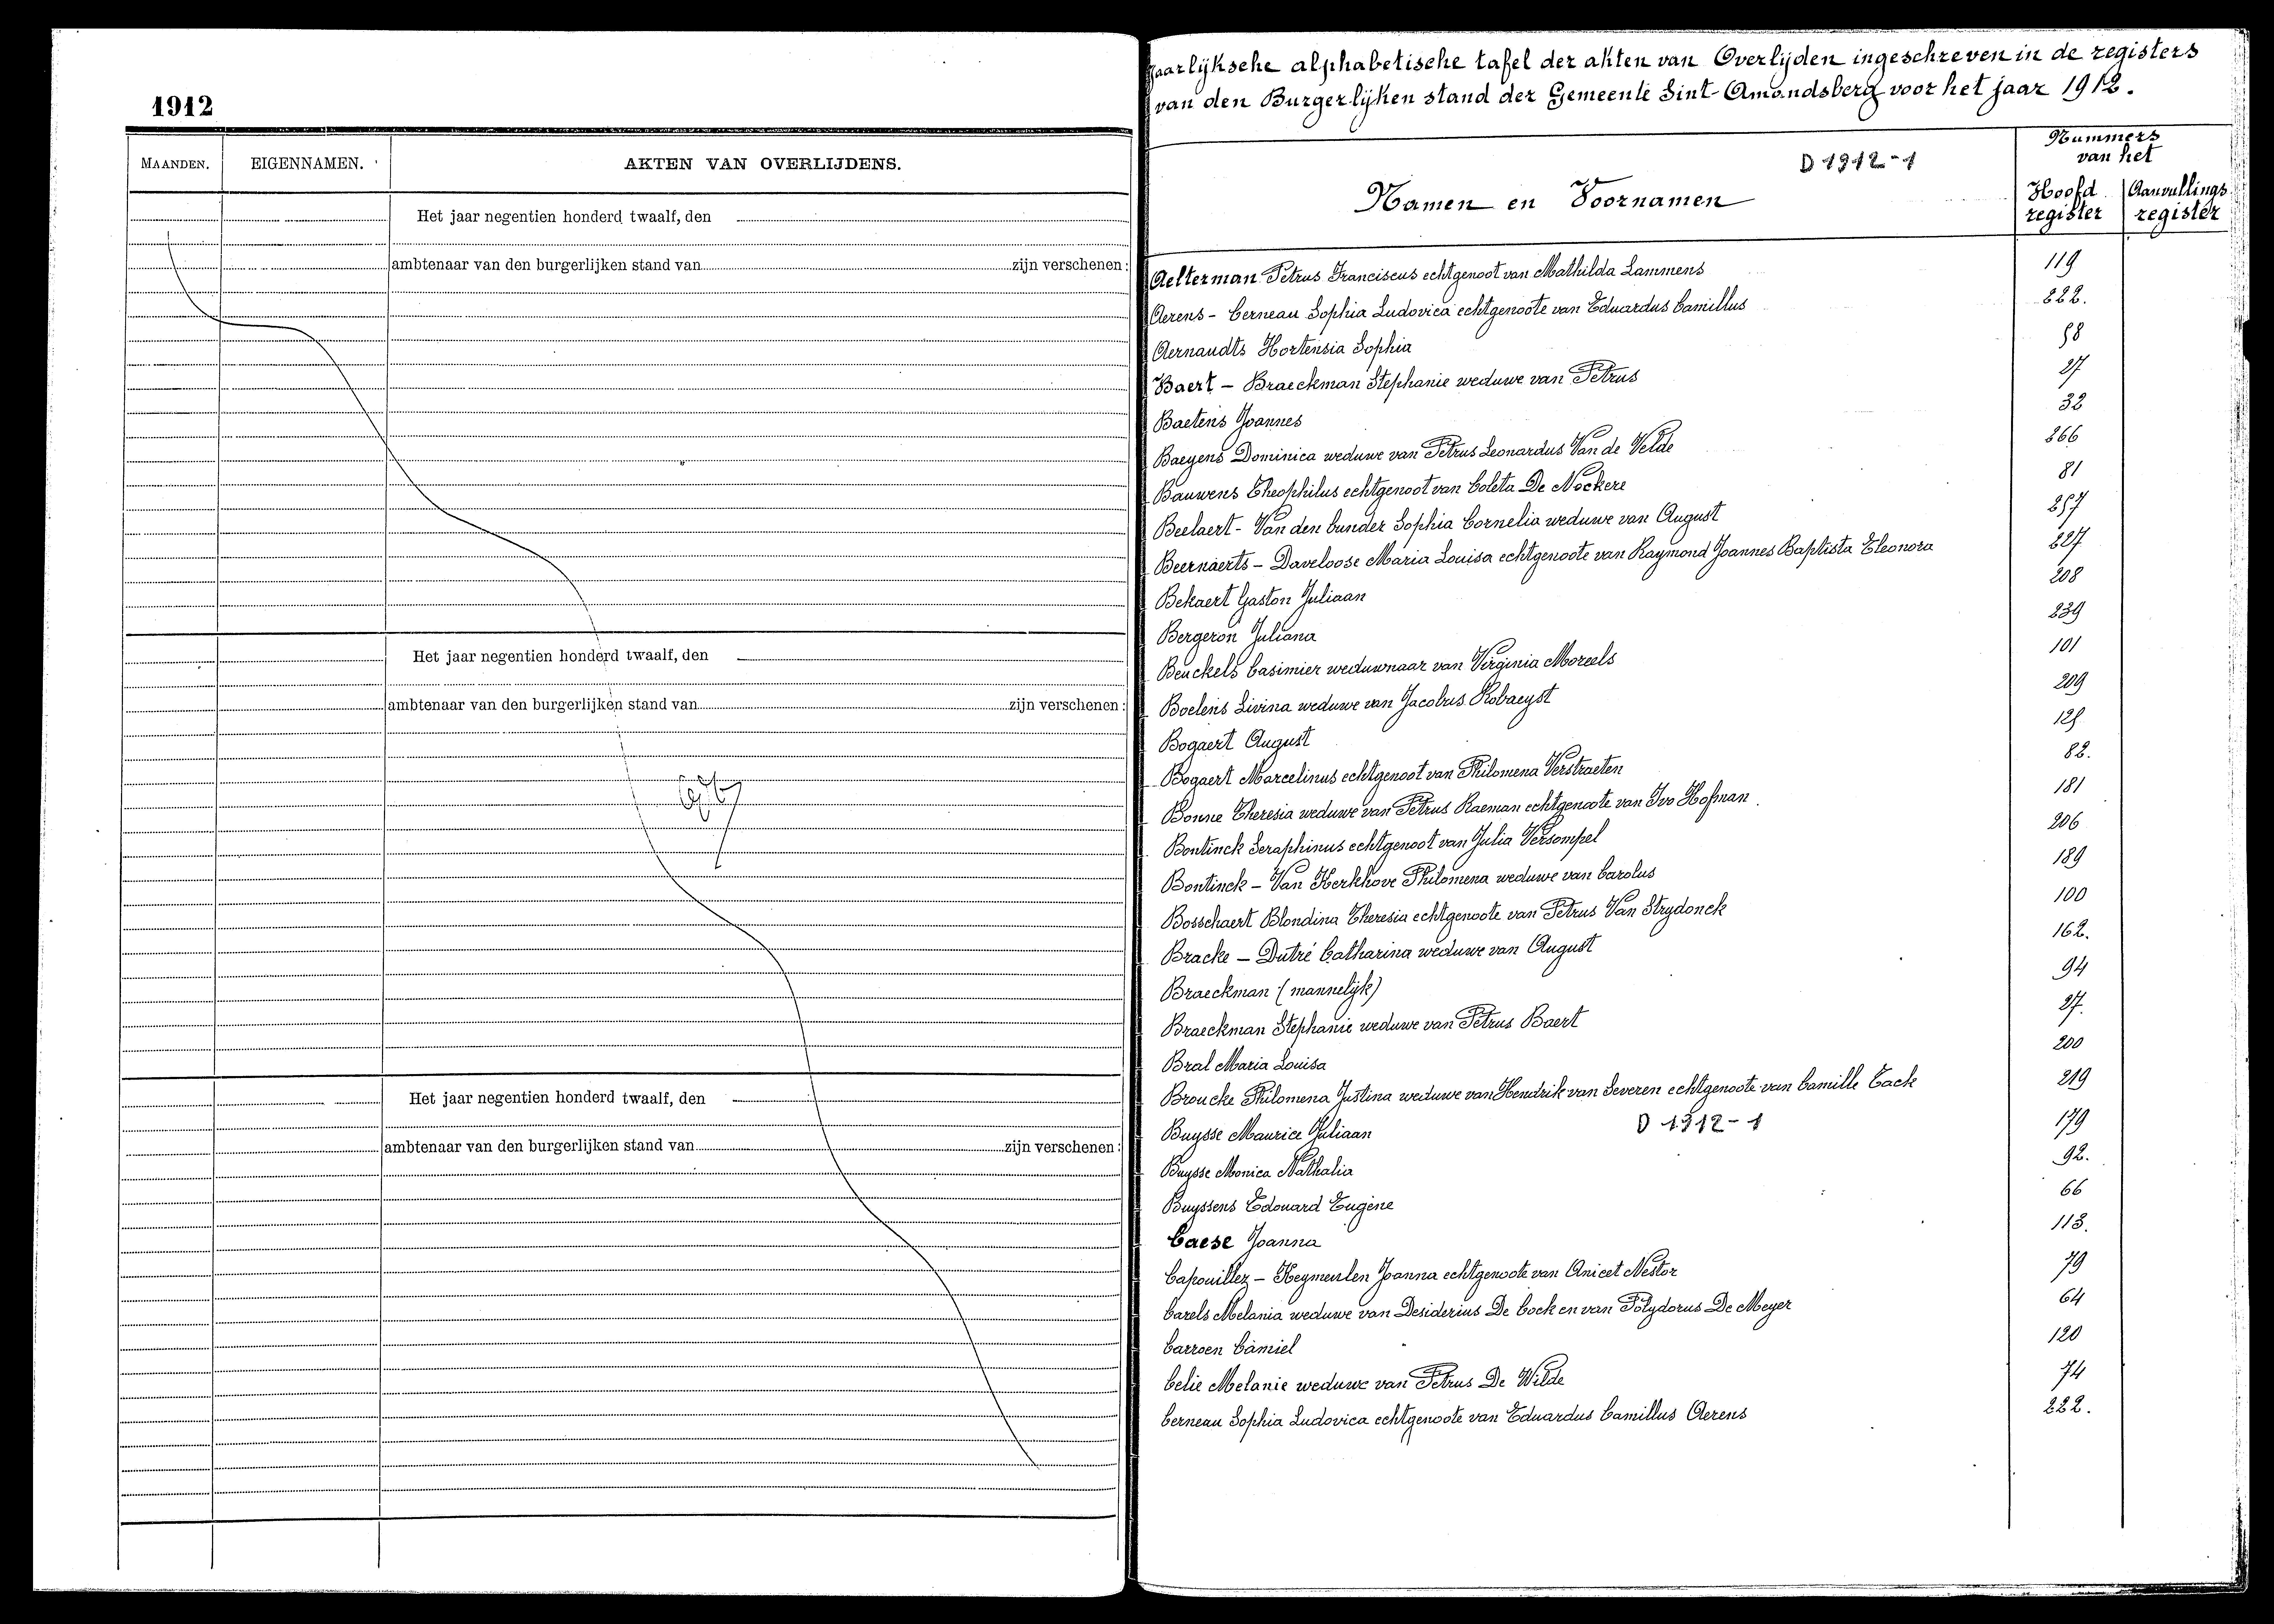 1912
MAANDEN. EIGENNAMEN. AKTEN VAN OVERLIJDENS.
Het jaar negentien honderd twaalf, den
ambtenaar van den burgerlijken stand van zijn verschenen:
Het jaar negentien honderd twaalf, den
ambtenaar van den burgerlijken stand van zijn verschenen:
Het jaar negentien honderd twaalf, den
ambtenaar van den burgerlijken stand van zijn verschenen:
Jaarlijksche alphabetische tafel der akten van Overlijden ingeschreven in de registers
van den Burgerlijken stand der Gemeente Sint-Amandsberg voor het jaar 1912.
D 1912-1
Namen en Voornamen
Nummers
van het
Hoofd register
Aanvullings register
Aelterman Petrus Franciscus echtgenoot van Mathilda Lammens 119
Aerens - Cerneau Sophia Ludovica echtgenoote van Eduardus Camillus 222.
Aernaudts Hortensia Sophia 58
Baert - Braeckman Stephanie weduwe van Petrus 27
Baetens Joannes 32
Baeyens Dominica weduwe van Petrus Leonardus Van de Velde 266
Bauwens Theophilus echtgenoot van Coleta De Nockere 81
Beelaert - Van den bunder Sophia Cornelia weduwe van August 257
Beernaerts - Daveloose Maria Louisa echtgenoote van Raymond Joannes Baptista Eleonora 227
Bekaert Gaston Juliaan 208
Bergeron Juliana 239
Beuckels Casimier weduwnaar van Virginia Moreels 101
Boelens Livina weduwe van Jacobus Robaeyst 209
Bogaert August 125
Bogaert Marcelinus echtgenoot van Philomena Verstraeten 82.
Bonne Theresia weduwe van Petrus Raeman echtgenoote van Ivo Hofman 181
Bontinck Seraphinus echtgenoot van Julia Versompel 206
Bontinck - Van Kerkhove Philomena weduwe van Carolus 189
Bosschaert Blondina Theresia echtgenoote van Petrus Van Strydonck 100
Bracke - Dutré Catharina weduwe van August 162.
Braeckman (mannelijk) 94
Braeckman Stephanie weduwe van Petrus Baert 27.
Bral Maria Louisa 200
Broucke Philomena Justina weduwe van Hendrik van Severen echtgenoote van Camille Tack 219
Buysse Maurice Juliaan D 1912-1 179
Buysse Monica Nathalia 92.
Buyssens Edouard Eugène 66
Caese Joanna 113.
Capouillez - Keymeulen Joanna echtgenoote van Anicet Nestor 79
Carels Melania weduwe van Desiderius De Cock en van Polydorus De Meyer 64
Carroen Camiel 120
Celie Melanie weduwe van Petrus De Wilde 74
Cerneau Sophia Ludovica echtgenoote van Eduardus Camillus Aerens 222.